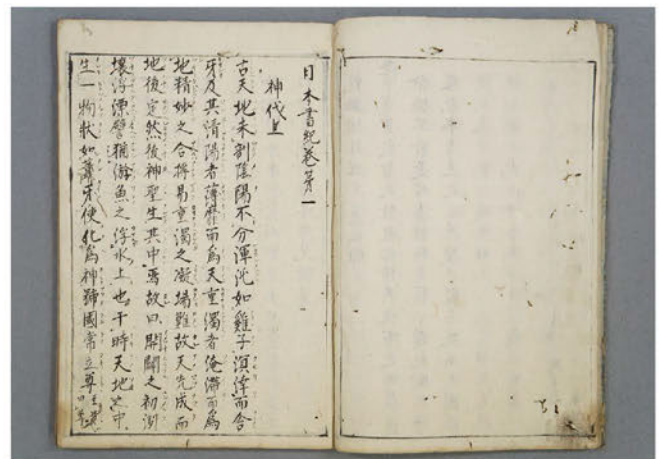 日本書紀巻苐一
神代上
古天地未剖陰陽不分渾沌如雞子溟涬而含
牙及其清陽者薄靡而爲天重濁者淹滞而爲
地精妙之合摶易重濁之凝堨難故天先成而
地後定然後神聖生其中焉故曰開闢之初洲
壤浮漂譬猶游魚之浮水上也于時天地之中
生一物狀如葦牙便化爲神號國常立尊